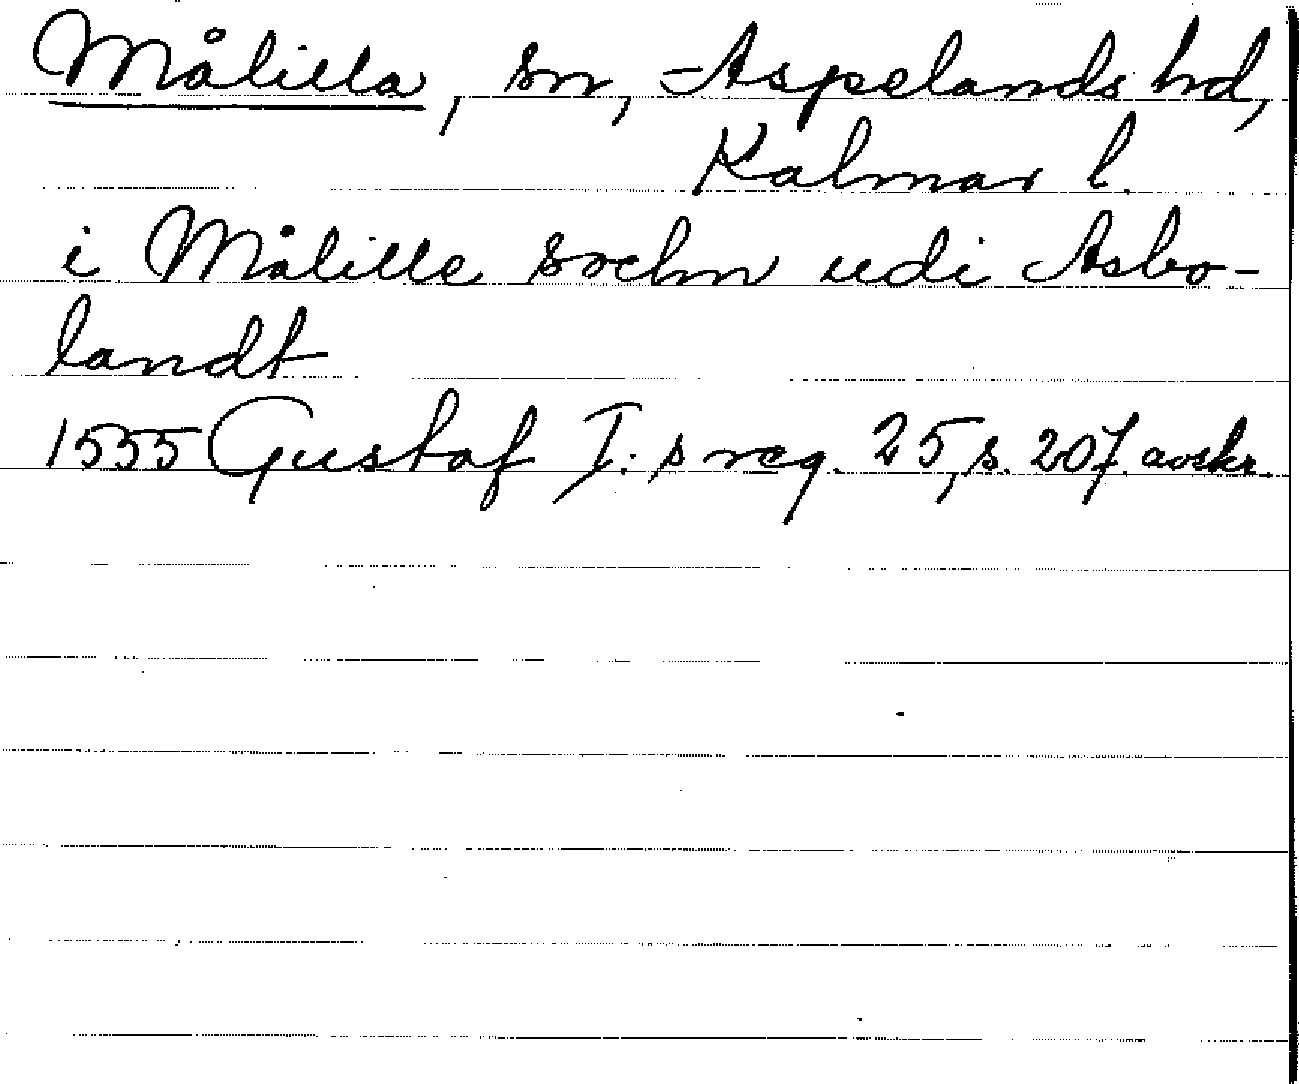 Målilla, sn, Aspelands hd,
Kalmar l.
i Målille sochn udi Asbo-
landt
1555 Gustaf I:s reg. 25, s. 207. avskr.